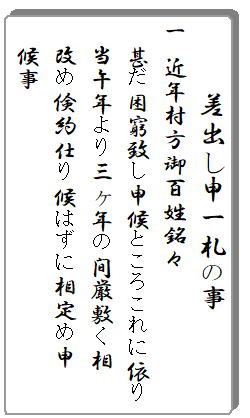 差出し申一札の事
一 近年村方御百姓銘々
甚だ困窮致し申候ところこれに依り
当午年より三ヶ年の間厳敷く相
改め倹約仕り候はずに相定め申
候事